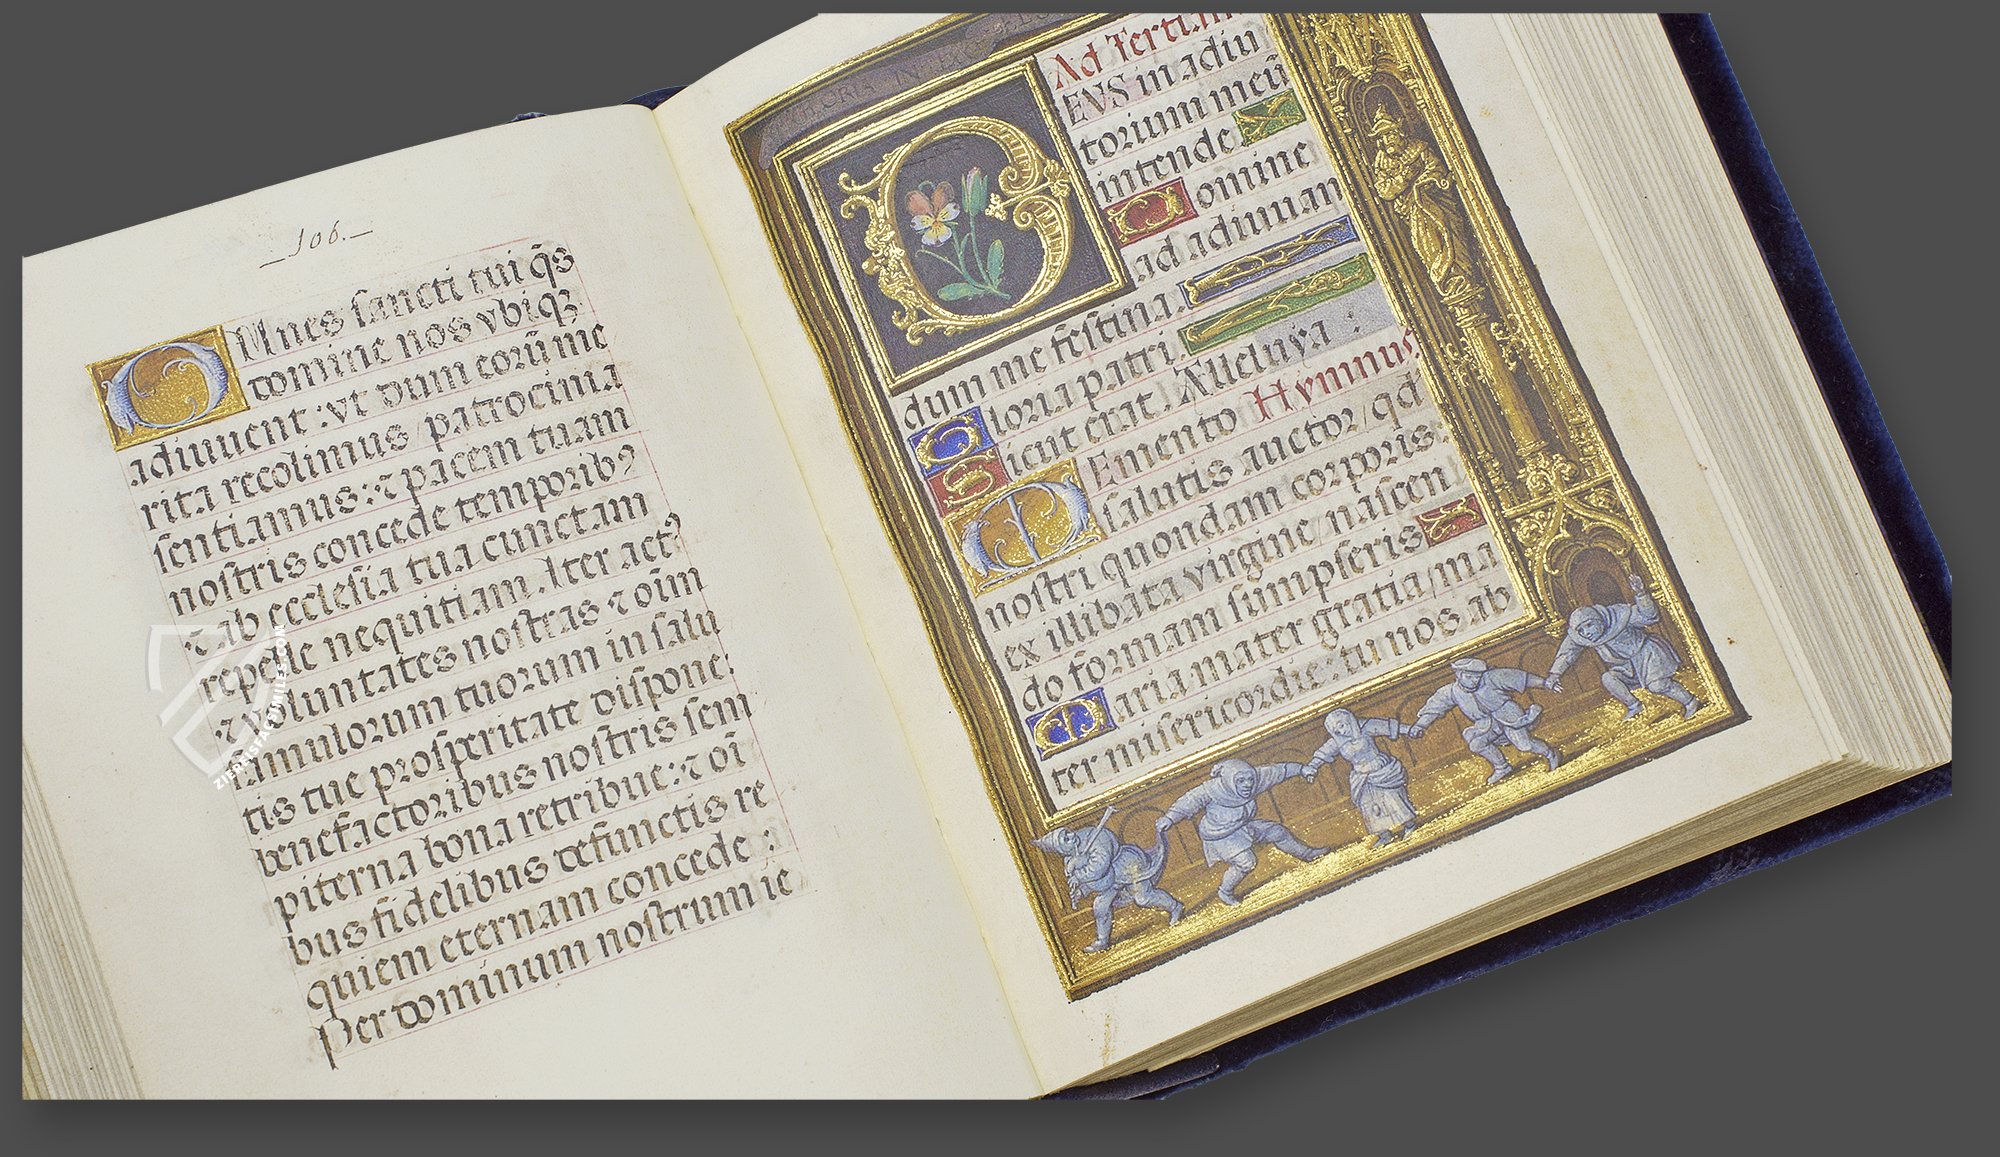 106.
OMnes sancti tui q̄s
domine nos vbiqꝫ
adiuuent : vt dum eorū me
rita recolimus / patrocinia
sentiamus : ⁊ pacem tuam
nostris concede temporibꝰ
⁊ ab ecclesia tua cunctam
repelle nequitiam. Iter actꝰ
⁊ voluntates nostras ⁊ oīm
famulorum tuorum in salu
tis tue prosperitate dispone:
benefactoribus nostris sem
piterna bona retribue : ⁊ oī
bus fidelibus defunctis re
quiem eternam concede :
Per dominum nostrum ie
Ad Tertiam
DEVS in adiu
torium meū
intende
Domine
ad adiuuan
dum me festina.
Gloria patri.
Sicut erat. Alleluya :
MEmento Hymnus
salutis auctor / qd
nostri quondam corporis :
ex illibata virgine / nascen
do formam sumpseris
Maria mater gratia / ma
ter misericordie : tu nos ab
ZIEREISFACSIMILES.COM